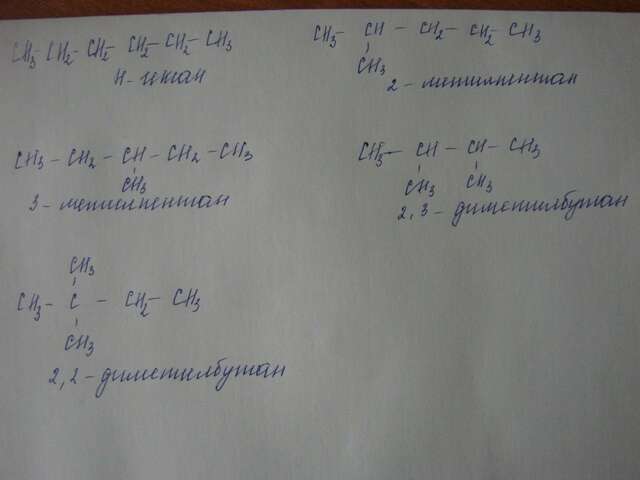 CH3- CH2- CH2- CH2- CH2- CH3
н-гексан
CH3- CH - CH2 - CH2- CH3
CH3
2 - метилпентан
CH3 - CH2 - CH - CH2 - CH3
CH3
3 - метилпентан
CH3 - CH - CH - CH3
CH3 CH3
2,3 - диметилбутан
CH3
CH3 - C - CH2 - CH3
CH3
2,2 - диметилбутан